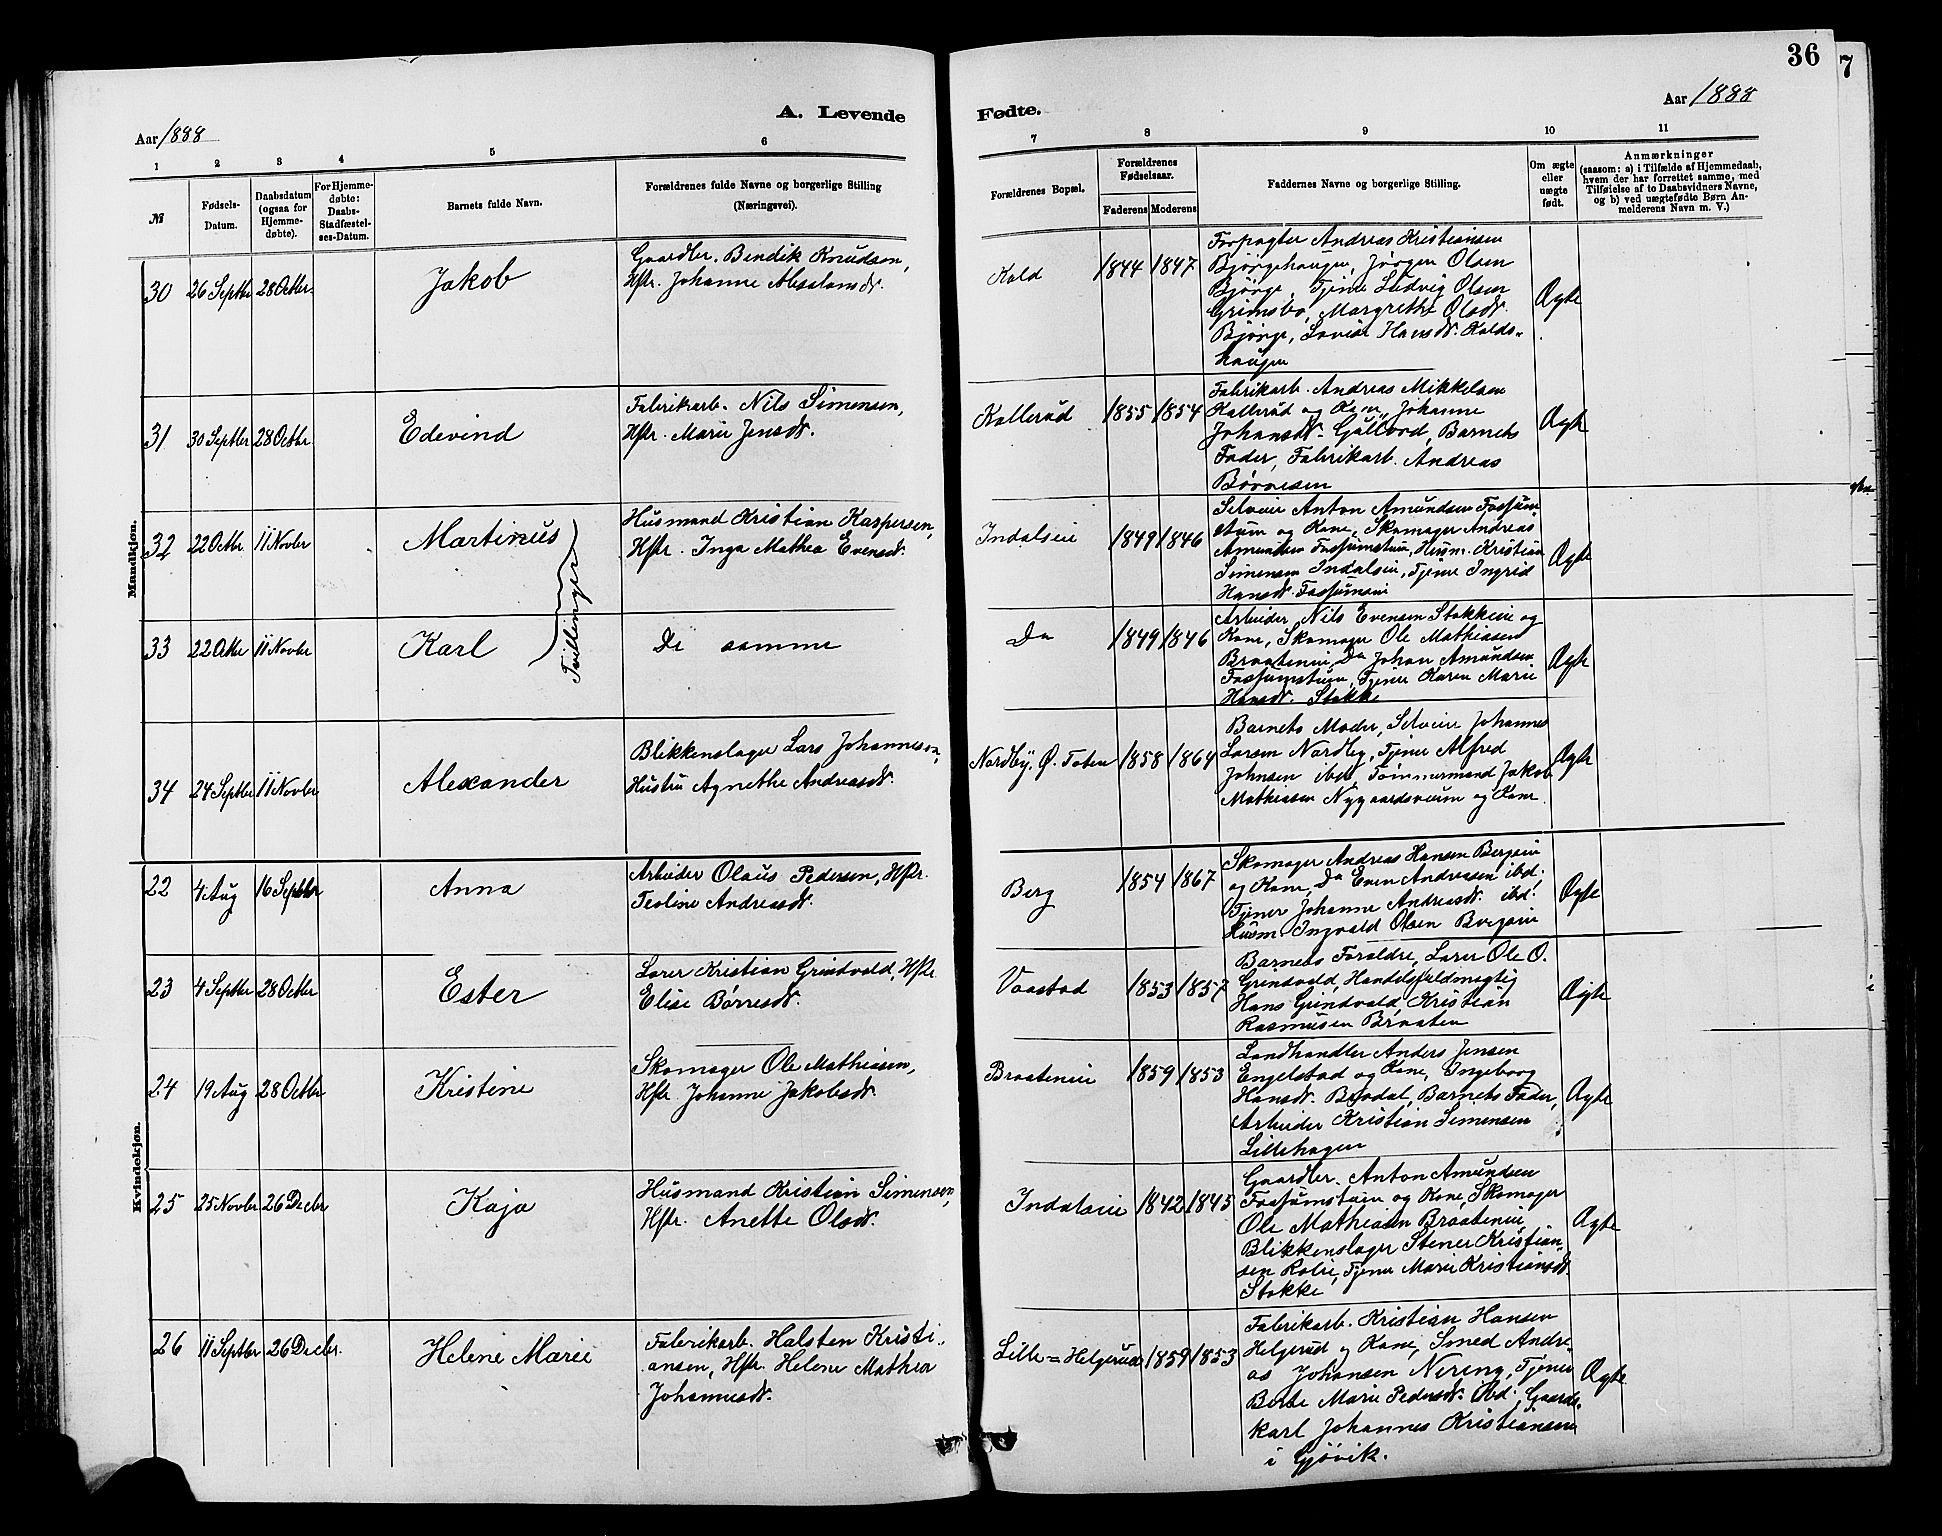 36
7
A. Levende
Fødte.
Aar 1888
Aar 1888
1 2 3 4 5 6
7 8 9 10 11
№
Fødsels-
Datum.
Daabsdatum
(ogsaa for
Hjemme-
døbte).
For Hjemme-
døbte:
Daabs-
Stadfæstel-
ses-Datum.
Barnets fulde Navn.
Forældrenes fulde Navne og borgerlige Stilling
(Næringsvei).
Forældrenes Bopæl.
Forældrenes
Fødselsaar.
Faderens Moderens
Faddernes Navne og borgerlige Stilling.
Om ægte
eller
uægte
født.
Anmærkninger
(saasom: a) i Tilfælde af Hjemmedaab,
hvem der har forrettet samme, med
Tilføielse af to Daabsvidners Navne,
og b) ved uægtefødte Børn An-
melderens Navn m. V.)
Mandkjøn.
30 26 Septbr 28 Octbr. Jakob
Gaardbr. Bendik Knudsen,
Hstr. Johanne Absalonsdt.
Kald 1844 1847
Forpagter Andreas Kristiansen
Bjørgehaugen, Jørgen Olsen
Bjørge, Tjener Ludvig Olsen
Grimsbo, Margrethe Olsdt.
Bjørge, Lovise Hansdt. Kalds-
haugen
Ægte
31 30 Septbr 28 Octbr Edevind
Fabrikarb. Nils Simensen,
Hstr. Marie Jensdt.
Kallerud 1855 1854
Fabrikarb. Andreas Mikkelsen
Kallerud og Kone, Johanne
Johansdt. Gullord, Barnets
Fader, Fabrikarb. Andreas
Børresen
Ægte
32 22 Octbr 11 Novbr Martinus
Husmand Kristian Kaspersen,
Hstr. Inga Mathea Evensdt.
Indalseie 1849 1846
Selveier Anton Amundsen Fossum-
stuen og Kone, Skomager Andreas
Amundsen Fossumstuen, Husm. Kristian
Simensen Indalseie, Tjener Ingrid
Hansdt. Fossumeie
Ægte
Tvillinger
33 22 Octbr 11 Novbr Karl
De samme
Do 1849 1846
Arbeider Nils Evensen Stokkeeie og
Kone, Skomager Ole Mathiasen
Braateneie, Do Johan Amundsen
Fossumstuen, Tjener Karen Marie
Hansdt. Stokke
Ægte
34 24 Septbr 11 Novbr Alexander
Blikkenslager Lars Johannesen,
Hustru Agnethe Andreasdt.
Nordby, Ø. Toten 1858 1864
Barnets Moder, Selveier Johannes
Larsen Nordby, Tjener Alfred
Johnsen ibd, Tømmermand Jakob
Mathiasen Nygaardsveum og Kone.
Ægte
Kvindekjøn.
22 4 Aug 16 Septbr Anna
Arbeider Olaus Pedersen, Hstr.
Teoline Andreasdt.
Berg 1854 1867
Skomager Andreas Hansen Bergeie
og Kone, Do Even Andreasen ibd;
Tjener Johanne Andreasdt. ibd.
Husm. Ingvald Olsen Bergeie
Ægte
23 4 Septbr 28 Octbr Ester
Lærer Kristian Grindvold, Hstr.
Elise Børresdt.
Vaastad 1853 1857
Barnets Forældre, Lærer Ole O.
Grindvold, Handelsfuldmægtig
Hans Grindvold, Kristian
Rasmusen Braaten
Ægte
24 19 Aug 28 Octbr Kristine
Skomager Ole Mathiasen,
Hstr. Johanne Jakobsdt.
Braateneie 1859 1853
Landhandler Anders Jensen
Engelstad og Kone, Ingeborg
Hansdt. Bredal, Barnets Fader,
Arbeider Kristian Simensen
Lillehagen
Ægte
25 25 Novbr 26 Decbr Kaja
Husmand Kristian Simensen,
Hstr. Anette Olsdt.
Indalseie 1842 1845
Gaardbr. Anton Amundsen
Fossumstuen og Kone, Skomager
Ole Mathiasen Braateneie
Blikkenslager Stener Kristian-
sen Kolie, Tjener Marie Kristiansdt.
Stokke
Ægte
26 11 Septbr 26 Decbr. Helene Marie
Fabrikarb. Halsten Kristi-
ansen, Hstr. Helene Mathea
Johannesdt.
Lille=Helgerud 1859 1853
Fabrikarb. Kristian Hansen
Helgerud og Kone, Smed Andre-
as Johansen Nering, Tjener
Berte Marie Pedersdt. ibd; Gaards-
karl Johannes Kristiansen
i Gjøvik.
Ægte